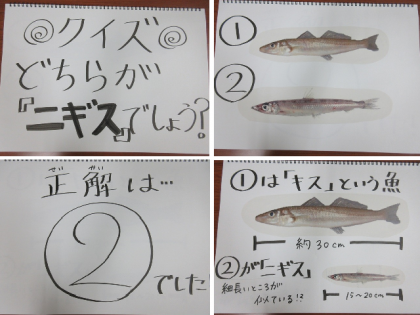 クイズ
どちらが
『ニギス』でしょう?
①
②
正解は…
せいかい
②
でした
①は「キス」という魚
約30cm
②が「ニギス」
細長いところが
似ている!?
15~20cm